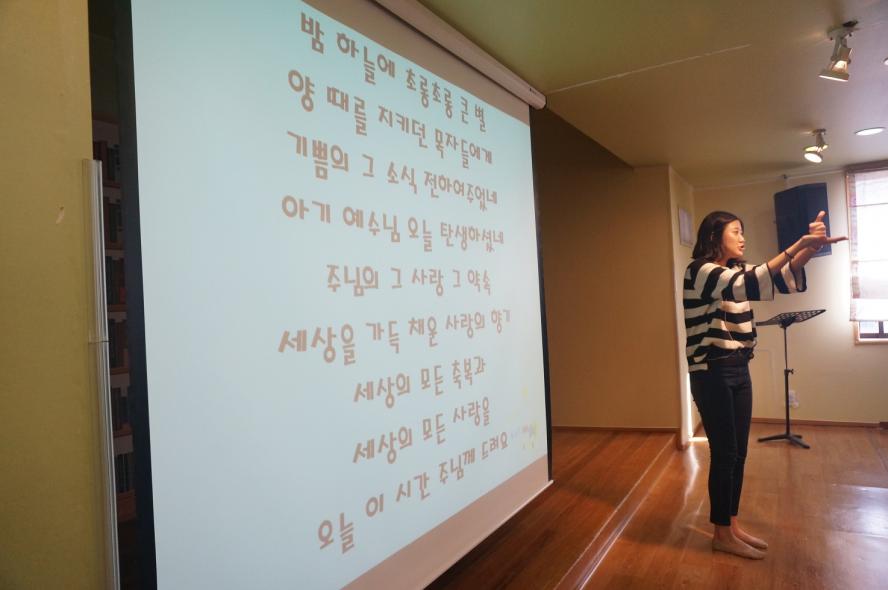 밤 하늘에 초롱초롱 큰 별
양 때를 지키던 목자들에게
기쁨의 그 소식 전하여주었네
아기 예수님 오늘 탄생하셨네
주님의 그 사랑 그 약속
세상을 가득 채운 사랑의 향기
세상의 모든 축복과
세상의 모든 사랑을
오늘 이 시간 주님께 드려요